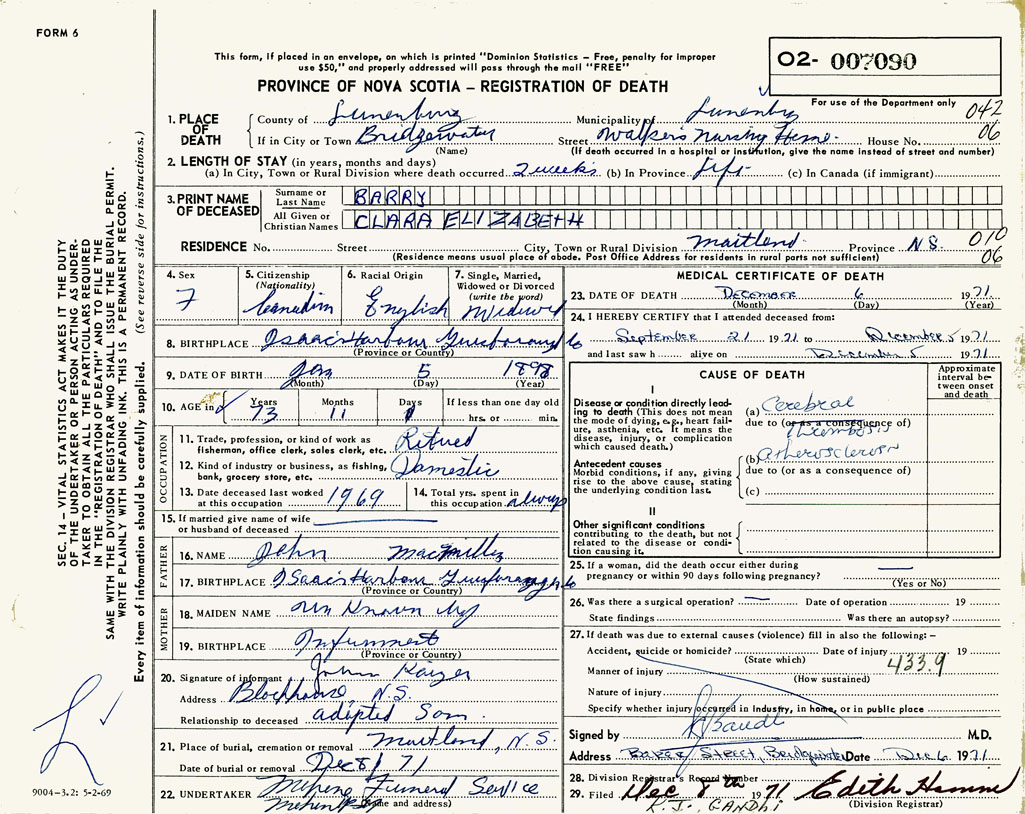 FORM 6
This form, if placed in an envelope, on which is printed "Dominion Statistics – Free, penalty for improper
use $50," and properly addressed will pass through the mail "FREE"
02- 007090
PROVINCE OF NOVA SCOTIA – REGISTRATION OF DEATH
For use of the Department only
042
06
1. PLACE OF DEATH
County of Lunenburg Municipality of Lunenburg
If in City or Town Bridgewater (Name) Street Walker's Nursing Home House No.
(If death occurred in a hospital or institution, give the name instead of street and number)
2. LENGTH OF STAY (in years, months and days)
(a) In City, Town or Rural Division where death occurred 2 weeks (b) In Province life (c) In Canada (if immigrant)
3. PRINT NAME OF DECEASED
Surname or Last Name BARRY
All Given or Christian Names CLARA ELIZABETH
RESIDENCE No. Street City, Town or Rural Division Maitland Province N.S. 010
(Residence means usual place of abode. Post Office Address for residents in rural parts not sufficient) 06
4. Sex F
5. Citizenship (Nationality) Canadian
6. Racial Origin English
7. Single, Married, Widowed or Divorced (write the word) Widowed
8. BIRTHPLACE Isaac's Harbour
(Province or Country)
9. DATE OF BIRTH Jan 5 1898
(Month) (Day) (Year)
10. AGE in Years 73 Months 11 Days 1 If less than one day old hrs. or min.
OCCUPATION
11. Trade, profession, or kind of work as fisherman, office clerk, sales clerk, etc. Retired
12. Kind of industry or business, as fishing, bank, grocery store, etc. Domestic
13. Date deceased last worked at this occupation 1969
14. Total yrs. spent in this occupation always
15. If married give name of wife or husband of deceased
FATHER
16. NAME John
17. BIRTHPLACE Isaac's Harbour
(Province or Country)
MOTHER
18. MAIDEN NAME
19. BIRTHPLACE
(Province or Country)
20. Signature of informant John Kaizer
Address Blockhouse N.S.
Relationship to deceased adopted Son
21. Place of burial, cremation or removal Maitland, N.S.
Date of burial or removal Dec 8/71
22. UNDERTAKER Funeral Service
(Name and address)
MEDICAL CERTIFICATE OF DEATH
23. DATE OF DEATH December 6 1971.
(Month) (Day) (Year)
24. I HEREBY CERTIFY that I attended deceased from:
September 21 1971 to December 5 1971
and last saw h alive on December 5 1971.
CAUSE OF DEATH
Approximate interval between onset and death
I
Disease or condition directly leading to death (This does not mean the mode of dying, e.g., heart failure, asthenia, etc. It means the disease, injury, or complication which caused death.)
(a) Cerebral
due to (or as a consequence of)
Thrombosis
(b)
due to (or as a consequence of)
Antecedent causes
Morbid conditions, if any, giving rise to the above cause, stating the underlying condition last.
(c)
II
Other significant conditions contributing to the death, but not related to the disease or condition causing it.
25. If a woman, did the death occur either during pregnancy or within 90 days following pregnancy?
(Yes or No)
26. Was there a surgical operation? Date of operation 19
State findings Was there an autopsy?
27. If death was due to external causes (violence) fill in also the following: –
Accident, suicide or homicide? Date of injury 19
(State which) 433.9
Manner of injury
(How sustained)
Nature of injury
Specify whether injury occurred in industry, in home, or in public place
Signed by M.D.
Address Baker Street, Bridgewater Date Dec 6 1971
28. Division Registrar's Record Number
29. Filed Dec 8th 1971 Edith
(Division Registrar)
K.J. GANDHI
SEC. 14 – VITAL STATISTICS ACT MAKES IT THE DUTY
OF THE UNDERTAKER OR PERSON ACTING AS UNDER-
TAKER TO OBTAIN ALL THE PARTICULARS REQUIRED
IN THE "REGISTRATION OF DEATH" AND TO FILE THE
SAME WITH THE DIVISION REGISTRAR WHO SHALL ISSUE THE BURIAL PERMIT.
WRITE PLAINLY WITH UNFADING INK. THIS IS A PERMANENT RECORD.
Every item of information should be carefully supplied. (See reverse side for instructions.)
9004-3.2: 5-2-69